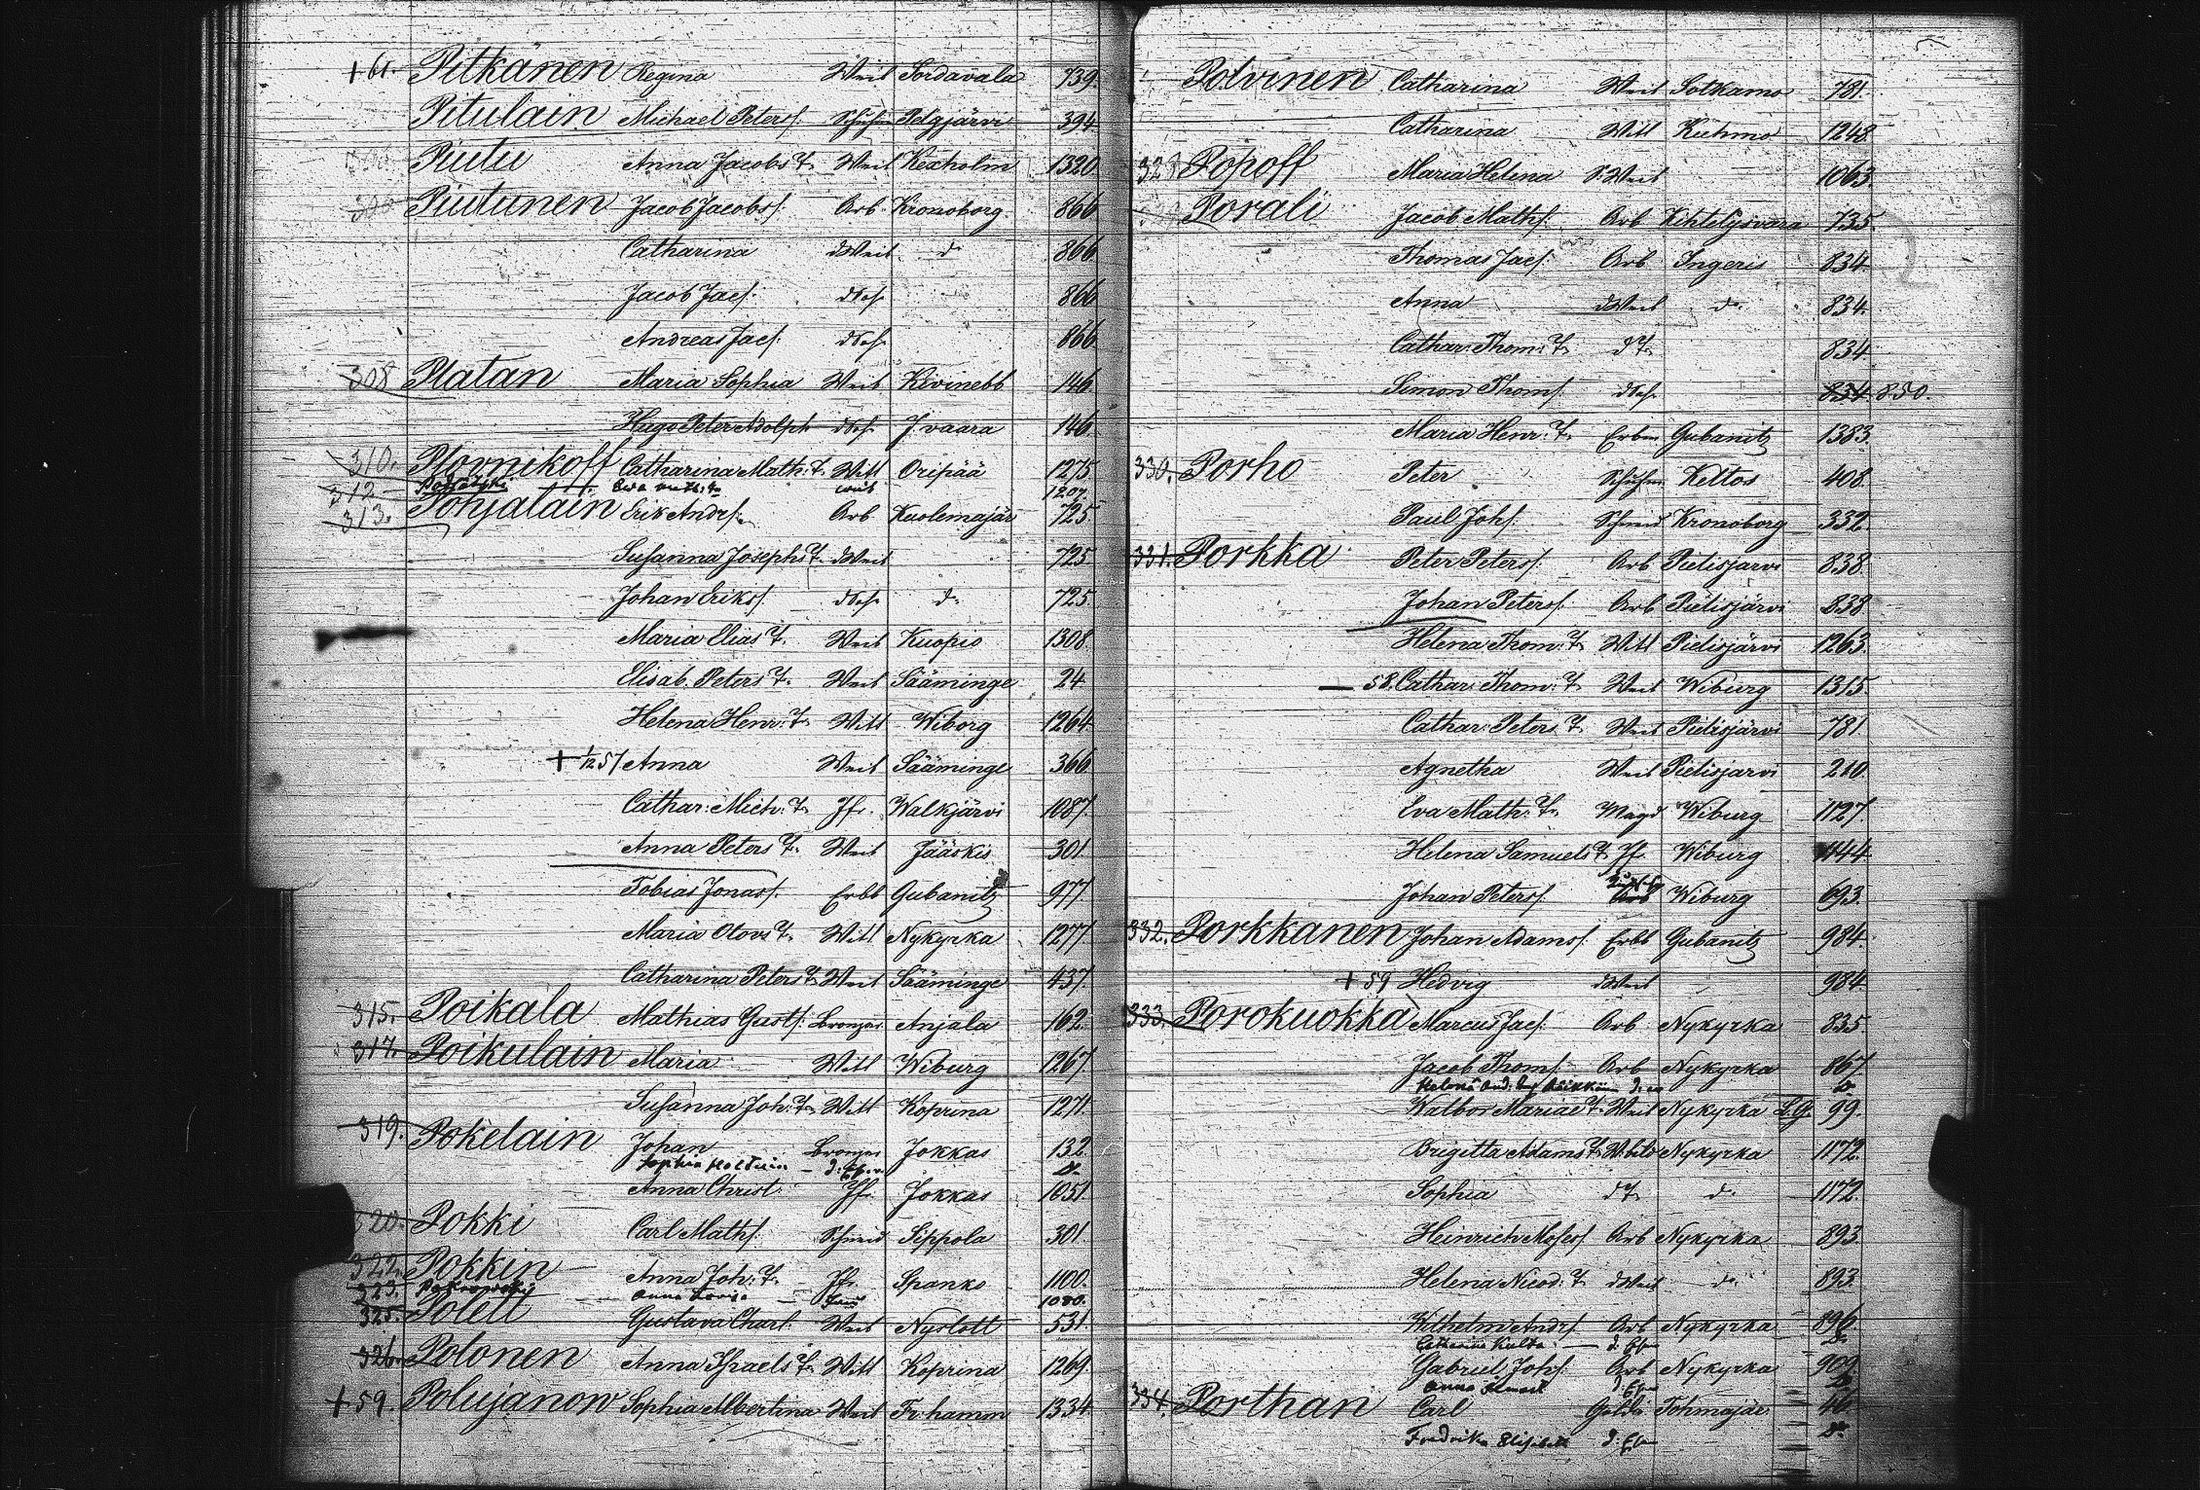 + 61. Pitkänen Regina Weib Sordavala 739.
Pitulain Michael Peterss. Schuhm Pelgjärvi 394
Piutu Anna Jacobs T. Weib Kexholm 1320.
Piutunen Jacob Jacobss. Arb. Kronoborg. 866
Catharina d Weib d 866
Jacob Jacs. d 866
Andreas Jacs. d 866
308 Platan Maria Sophia Weib Kivinebb 146
Hugo Peter Adolph J. vaara 146
310. Plovnikoff Catharina Math. T. Witt Oripää 1275.
312 weib 1207.
313. Pohjalain Erik Andrs. Arb Kuolemajär 725
Susanna Josephs T. d Weib 725
Johan Erikss. d. 725
Maria Elias T. Weib Kuopio 1308.
Elisab. Peters T. Weib Sääminge 24
Helena Henr. T. Witt Wiborg 1264
+ 1/12 57. Anna Weib Sääminge 366
Cathar. Mich. T. Jfr. Walkjärvi 1087.
Anna Peters T. Weib Jääskis 301
Tobias Jonass. Erbb Gubanitz 977.
Maria Olovs T. Witt Nykyrka 1277
Catharina Peters T. Weib Sääminge 437.
315. Poikala Mathias Gusts. Anjala 162.
317. Poikulain Maria Witt Wiburg 1267.
Susanna Joh. T. Witt Koprina 1271.
319. Pokelain Johan Jokkas 132.
Anna Christ. Jfr. Jokkas 1051.
320. Pokki Carl Maths. Schneid Sippola 301
322. Pokkin Anna Joh. T. Jfr. Spanko 1100.
323. Anna Lovisa 1080.
325. Polett Gustava Charl. Weib Nyslott 531
326. Polonen Anna Israels T. Witt Koprina 1269
+ 59. Polujanow Sophia Albertina Weib Fr. hamm 1334
Polvinen Catharina Weib Sotkamo 781.
Catharina Witt Kuhmo 1248.
323 Popoff Maria Helena S. Weib 1063
Porali Jacob Maths. Arb Kihtelysvara 735.
Thomas Jacs. Arb Ingeris 834
Anna d Weib d. 834.
Cathar. Thom. T. d T. 834
Simon Thoms. 834. 850.
Maria Henr. T. Gubanitz 1383.
330. Porho Peter Schuhm Keltos 408.
Paul Johs. Schmid Kronoborg 332.
331. Porkka Peter Peterss. Arb Pielisjarvi 838
Johan Peterss. Arb Pielisjärvi 838
Helena Thom. T. Witt Pielisjärvi 1263.
— 58. Cathar. Thom. T. Weib Wiburg 1315.
Cathar. Peters T. Weib Pielisjärvi 781.
Agnetha Weib Pielisjarvi 210.
Eva Math. T. Magd Wiburg 1127.
Helena Samuels T. Jf. Wiburg 1144
Johan Peterss. Arb Wiburg 693.
332. Porkkanen Johan Adamss. Erbb Gubanitz 984.
+ 59 Hedvig d Weib 984
333. Porokuokka Marcus Jacs. Arb Nykyrka 835.
Jacob Thoms. Arb Nykyrka 867.
Walbor Mariae T. Weib Nykyrka L.G. 99.
Brigitta Adams T. Nykyrka 1172.
Sophia d T. d. 1172
Heinrich Moses Arb Nykyrka 893.
Helena Nicod. T. d Weib d. 893.
Wilhelm Andrs. Arb Nykyrka 896.
Gabriel Johs. Arb Nykyrka 909.
334. Porthan Carl Tohmajär 46
Fredrika Elisabeth d.